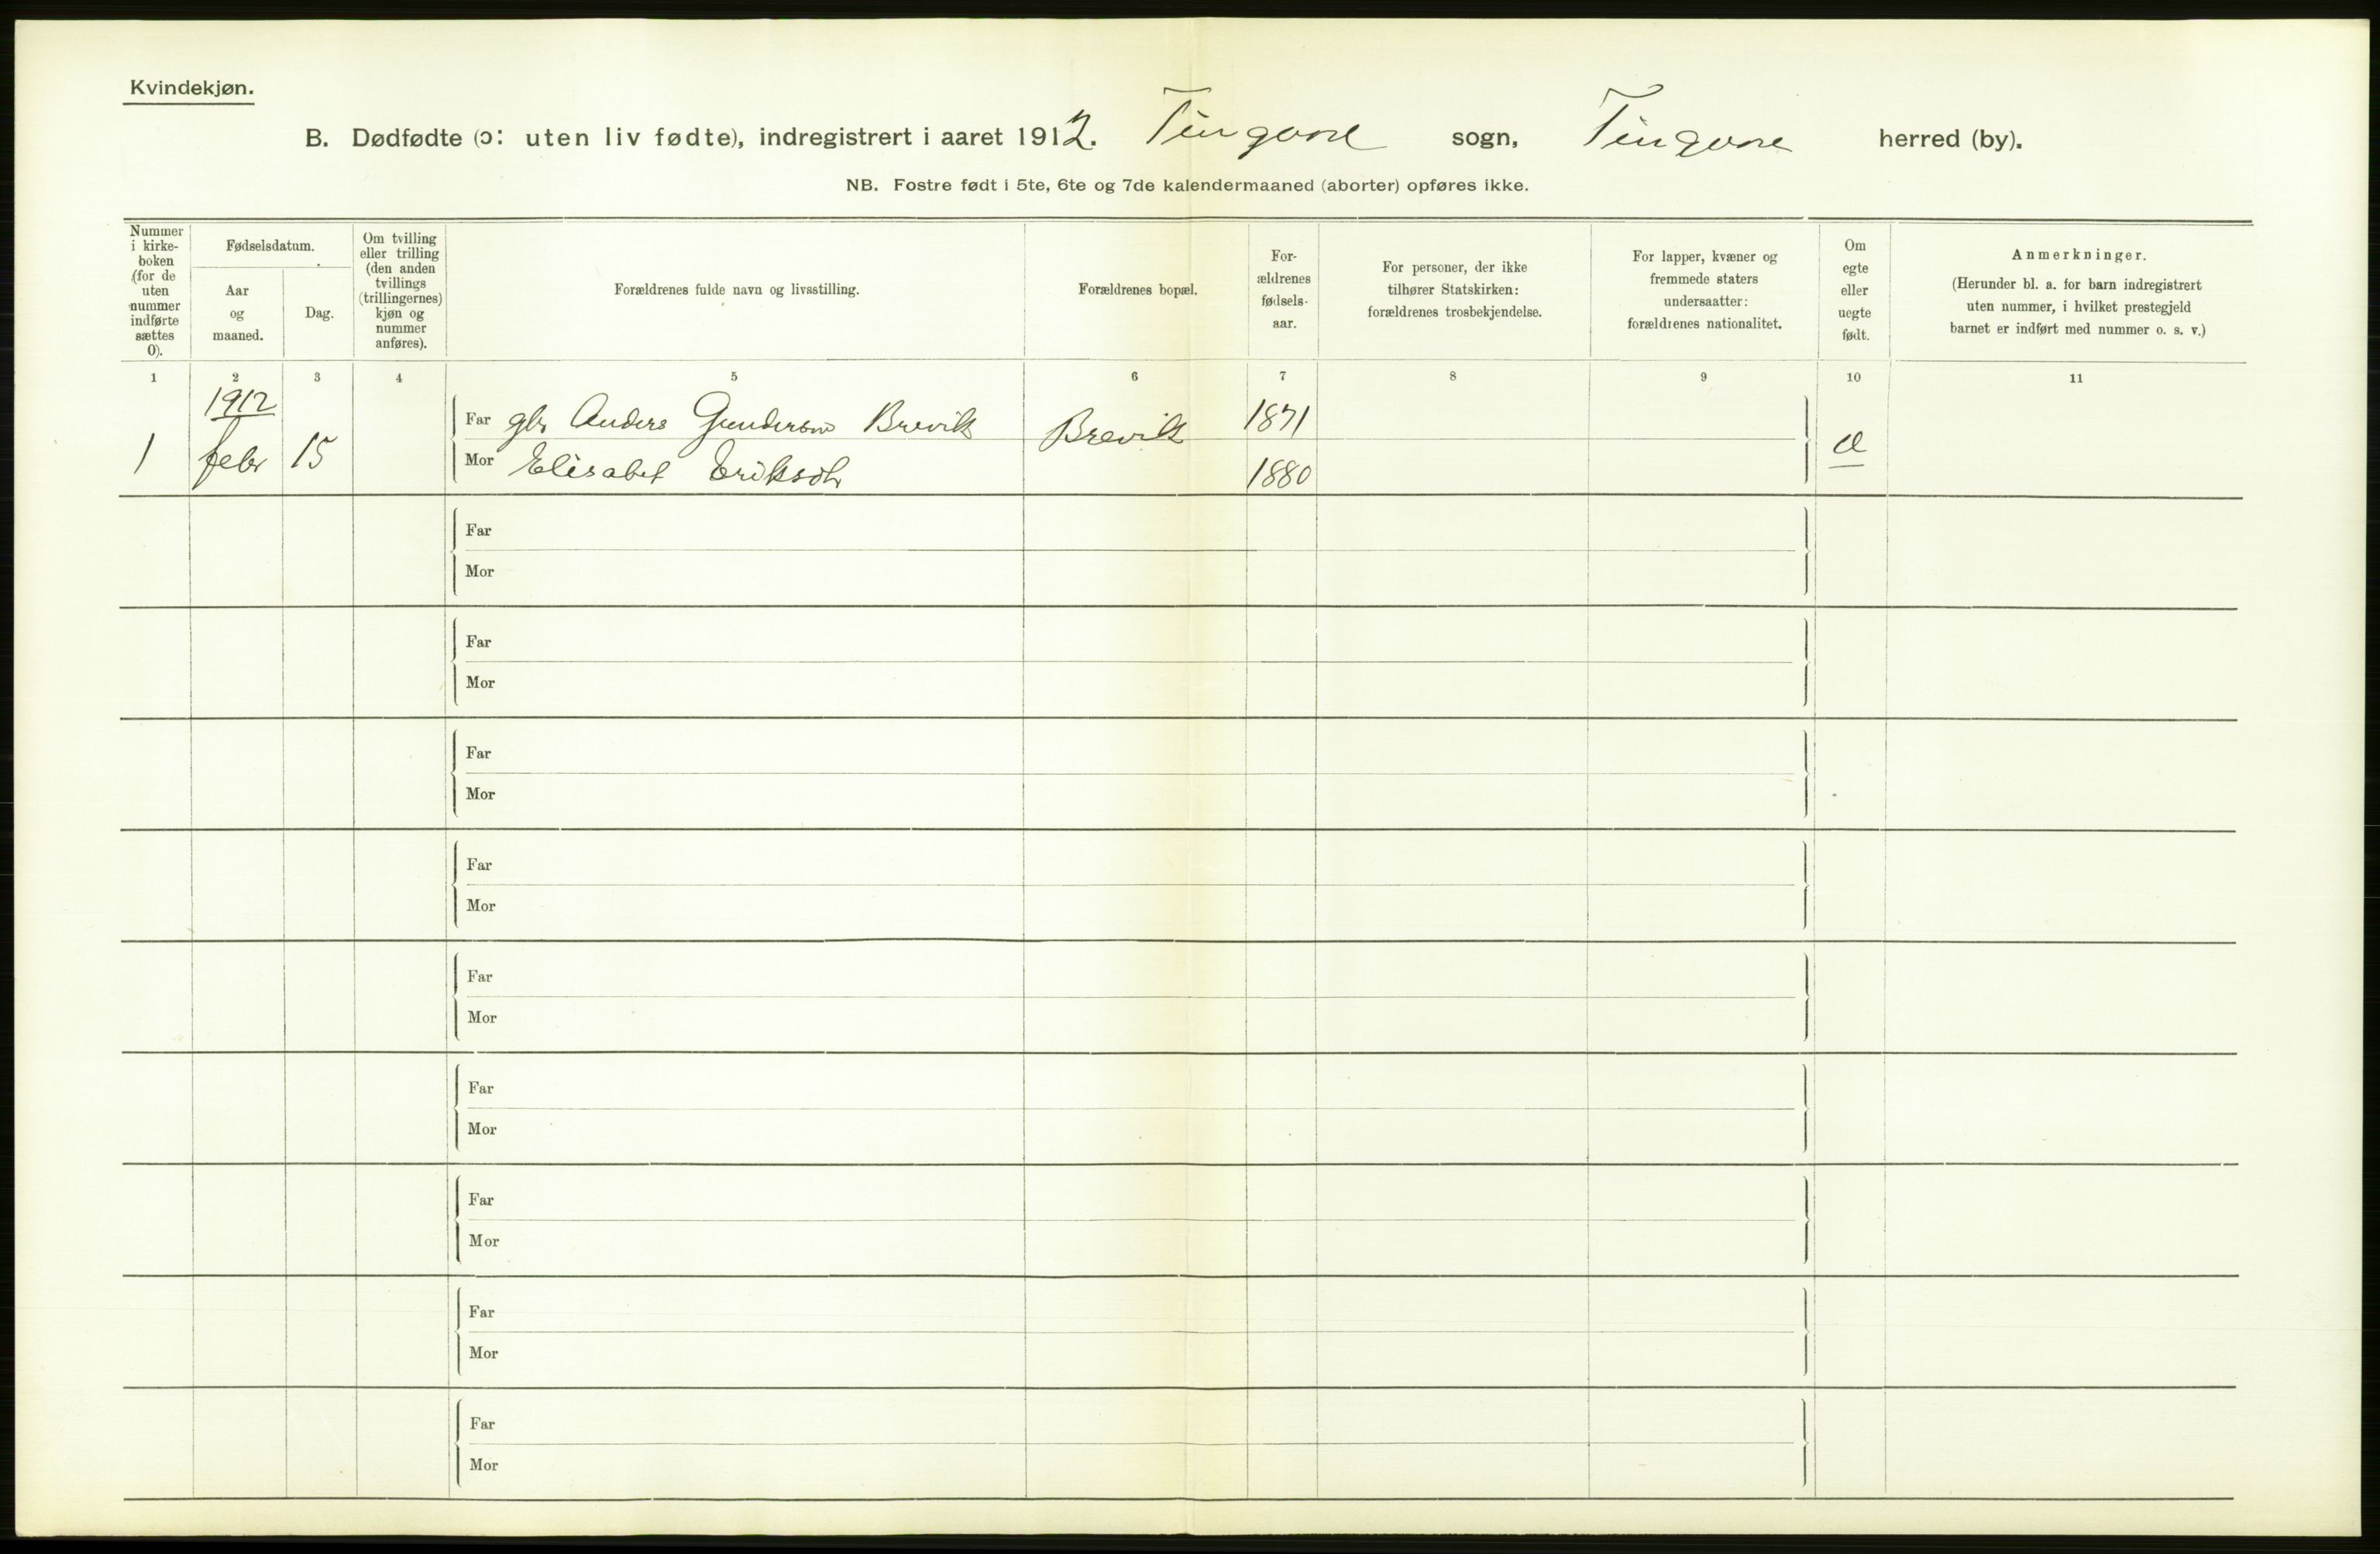 Kvindekjøn.
B. Dødfødte (ɔ: uten liv fødte), indregistrert i aaret 1912. Tingvoll sogn, Tingvoll herred (by).
NB. Fostre født i 5te, 6te og 7de kalendermaaned (aborter) opføres ikke.
Nummer
i kirke-
boken
(for de
uten
nummer
indførte
sættes
0).
Fødselsdatum.
Aar
og
maaned.
Dag.
Om tvilling
eller trilling
(den anden
tvillings
(trillingernes)
kjøn og
nummer
anføres).
Forældrenes fulde navn og livsstilling.
Forældrenes bopæl.
For-
ældrenes
fødsels-
aar.
For personer, der ikke
tilhører Statskirken:
forældrenes trosbekjendelse.
For lapper, kvæner og
fremmede staters
undersaatter:
forældrenes nationalitet.
Om
egte
eller
uegte
født.
Anmerkninger.
(Herunder bl. a. for barn indregistrert
uten nummer, i hvilket prestegjeld
barnet er indført med nummer o. s. v.)
1 2 3 4 5 6 7 8 9 10 11
1912
Far gbr Anders Gundersen Brevik Brevik 1871
1 febr 15 Mor Elisabet Eriksdtr 1880
Far
Mor
Far
Mor
Far
Mor
Far
Mor
Far
Mor
Far
Mor
Far
Mor
Far
Mor
Far
Mor